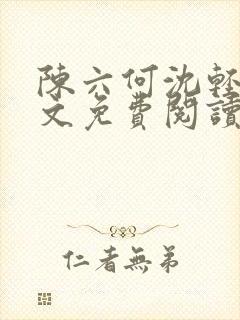 陳六何沈輕
文免費閱讀
仁者無弟